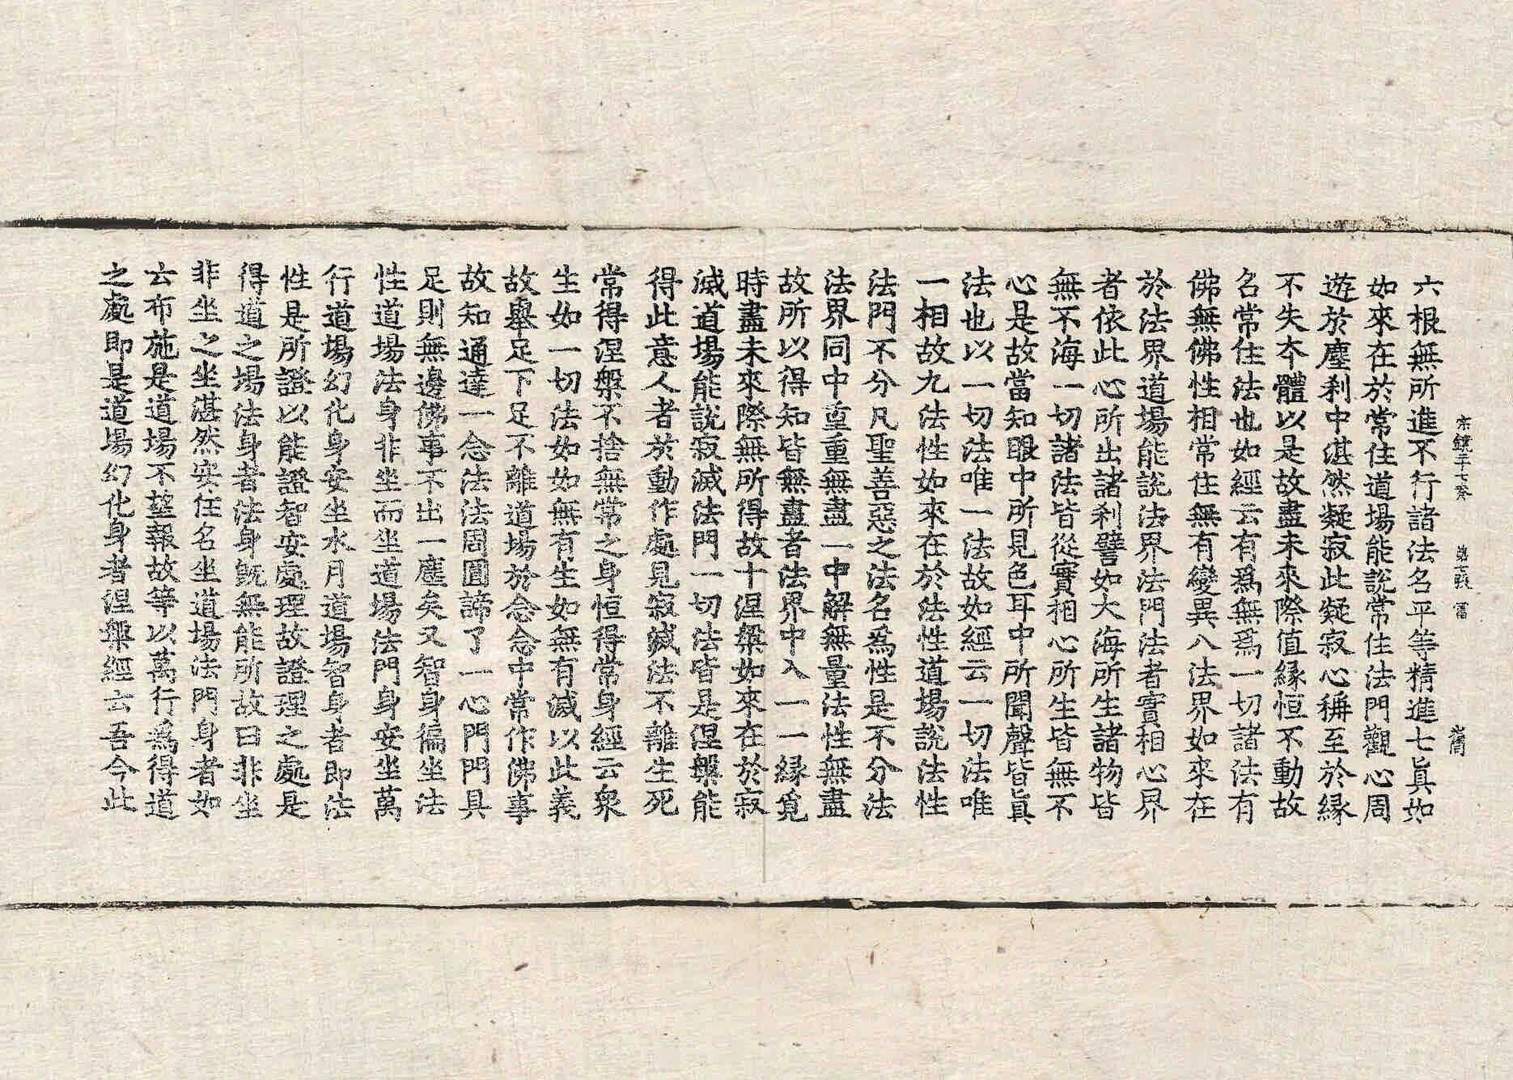 六根無所進不行諸法名平等精進七眞如
如來在於常住道場能說常住法門觀心周
遊於塵刹中湛然凝寂此凝寂心稱至於縁
不失夲體以是故盡未來際值縁恒不動故
名常住法也如經云有爲無爲一切諸法有
佛無佛性相常住無有變異八法界如來在
於法界道場能說法界法門法者實相心界
者依此心所出諸刹譬如大海所生諸物皆
無不海一切諸法皆從實相心所生皆無不
心是故當知眼中所見色耳中所聞聲皆眞
法也以一切法唯一法故如經云一切法唯
一相故九法性如來在於法性道場說法性
法門不分凡聖善惡之法名爲性是不分法
法界同中重重無盡一中解無量法性無盡
故所以得知皆無盡者法界中入一一縁覓
時盡未來際無所得故十涅槃如來在於寂
滅道場能說寂滅法門一切法皆是涅槃能
得此意人者於動作處見寂滅法不離生死
常得涅槃不捨無常之身恒得常身經云衆
生如一切法如如無有生如無有滅以此義
故舉足下足不離道場於念念中常作佛事
故知通達一念法法周圓諦了一心門門具
足則無邊佛事不出一塵矣又智身徧坐法
性道場法身非坐而坐道場法門身安坐萬
行道場幻化身安坐水月道場智身者即法
性是所證以能證智安處理故證理之處是
得道之場法身者法身旣無能所故曰非坐
非坐之坐湛然安住名坐道場法門身者如
云布施是道場不望報故等以萬行爲得道
之處即是道場幻化身者涅槃經云吾今此